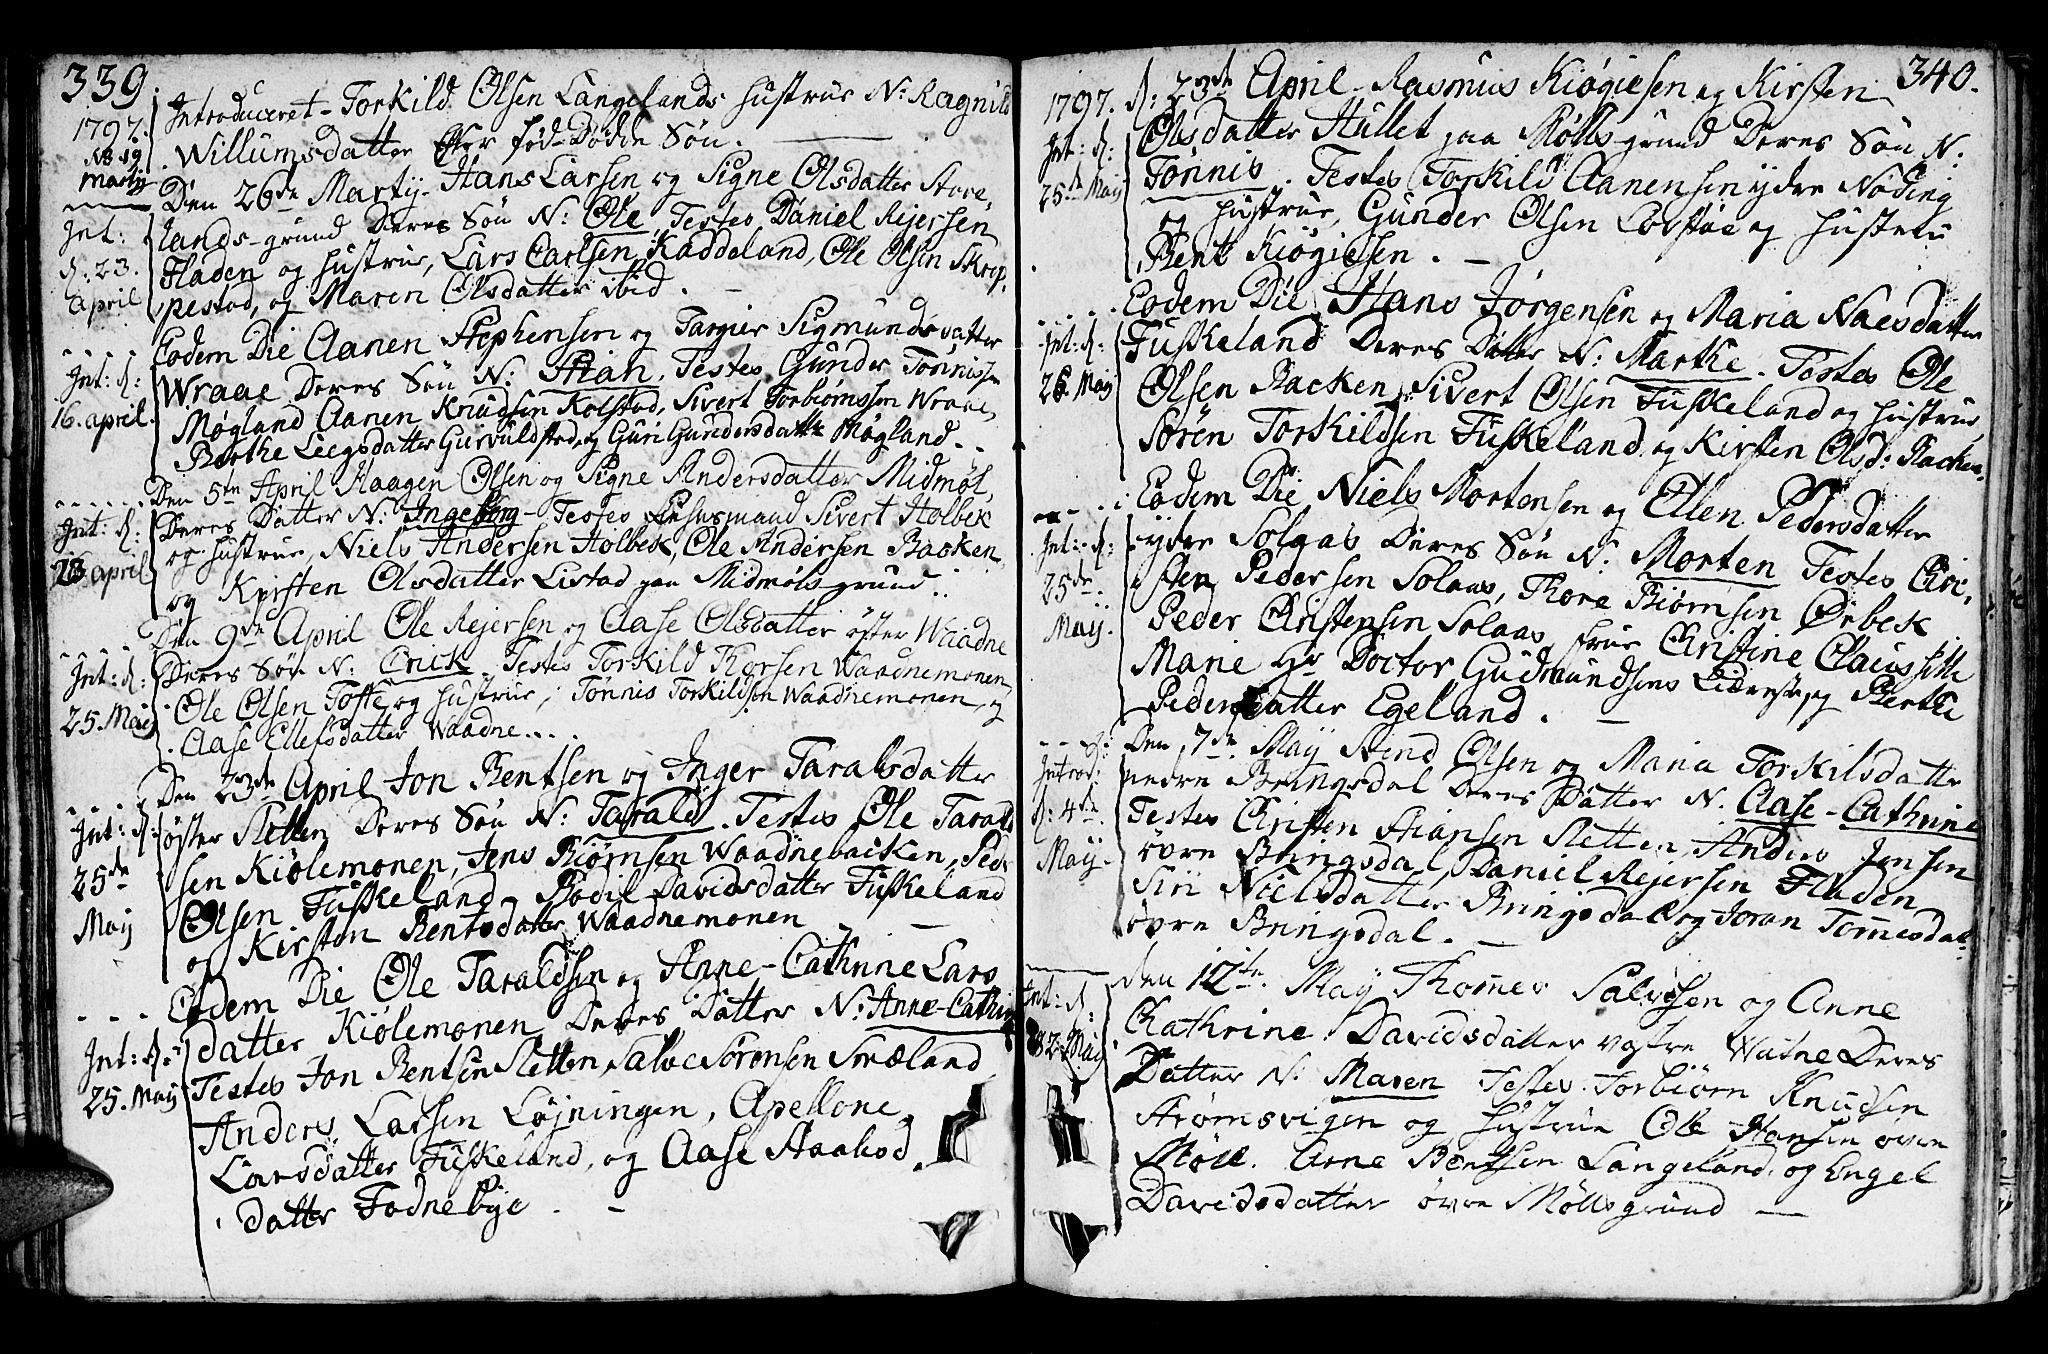 339.
1797.
N: 19
Marty
Introduceret - Torkild Olsen Langelands hustrue N: Ragnild
Willumsdatter efter fød-Dødde Søn.
Den 26de Marty - Hans Larsen og Signe Olsdatter Store,
Int:
d. 23.
April
lands-grund Deres Søn N: Ole. Testes Daniel Rejersen
Fladen og hustrue, Lars Carlsen Kaddeland, Ole Olsen Skrep,
pestad, og Maren Olsdatter ibid.
Eodem Die Aanen Stephensen og Targier Sigmundsdatter
Int: d:
16. april.
Wraae Deres Søn N: Stian, Testes Gunder Tønnissen
Møgland Aanen Knudsen Kolstad, Sivert Torbiørnssen Wraae,
Berthe Leegsdatter Gurvuldsted, og Guri Gundersdatter Møgland.
Den 5te April Haagen Olsen og Signe Andersdatter Midmøl,
Int: d:
23 april
Deres Datter N: Ingeborg - Testes Lensmand Sivert Holbek
og hustrue, Niels Andersen Holbek, Ole Andersen Backen
og Kirsten Olsdatter Listad paa Midmøls grund.
Den 9de April Ole Rejersen og Aase Olsdatter øster Waadne
Int: d:
25. May
Deres Søn N: Erick Testes Torkild Thorsen Waadnemonen,
Ole Olsen Tofte og hustrue, Tønnis Torkildsen Waadnemonen, og
Aase Ellefsdatter Waadne...
Den 23de April Jon Bentsen og Inger Taraldsdatter
Int: d:
25de
May
øster Sletten Deres Søn N: Tarald. Testes Ole Tarald
sen Kiølemonen, Jens Biørnsen Waadnebacken, Peder
Olsen Fuskeland, Bodil Davidsdatter Fuskeland
og Kirsten Bentsdatter Waadnemonen
Eodem Die Ole Taraldsen og Anne-Cathrine Lars
Int: d:
25. May
datter Kiølemonen Deres Datter N: Anne-Cathrin
Testes Jon Bentsen Sletten, Salve Sørensen Smæland
Anders Larsen Løjningen, Apellone
Larsdatter Fuskeland, og Aase Haakod
datter Fodnebye.
340.
1797. d: 23de April - Rasmus Kiøgiesen og Kirsten
Int: d:
25de May
Olsdatter Hullet paa Mølls-grund Deres Søn N:
Tønnis. Testes Torkild Aanensen ydre Nøding
og hustrue, Gunder Olsen Lovstae og hustrue
Bent Kiøgiesen.
Eodem Die Hans Jørgensen og Maria Naesdatter
Int: d:
26 May
Fuskeland Deres Datter N: Marthe. Testes Ole
Olsen Backen, Sivert Olsen Fuskeland og hustrue,
Søren Torkildsen Fuskeland og Kirsten Olsd: Backen.
Eodem Die Niels Mortensen og Ellen Pedersdatter
Int: d:
25de
May.
ydre Solaas Deres Søn N: Morten Testes Chri,
sten Pedersen Solaas, Thore Biørnsen Ørbek
Peder Christensen Solaas, frue Christine Clausseth
Marie Hr Doctor Gudmundsens og Berthe
Pedersdatter Egeland.
Den 7de May Svend Olsen og Maria Torkilsdatter
Introd:
d: 4de
May.
nedre Bringsdal Deres Datter N. Aase-Cathrine
Testes Christen Stiansen Sletten Anders Jensen
øvre Bringsdal, Daniel Rejersen Fladen
Siri Nielsdatter Bringsdal og Joran Tommesdat:
øvre Bringsdal.
den 12te May Thomes Salvesen og Anne
Int: d:
May
Chathrine Davidsdatter vestre Watne Deres
Datter N: Maren Testes Torbiørn Knudsen
Strømsvigen og hustrue Ole Hansen øvre
Møll. Arne Bentsen Langeland, og Engel
Davidsdatter øvre Mølls grund